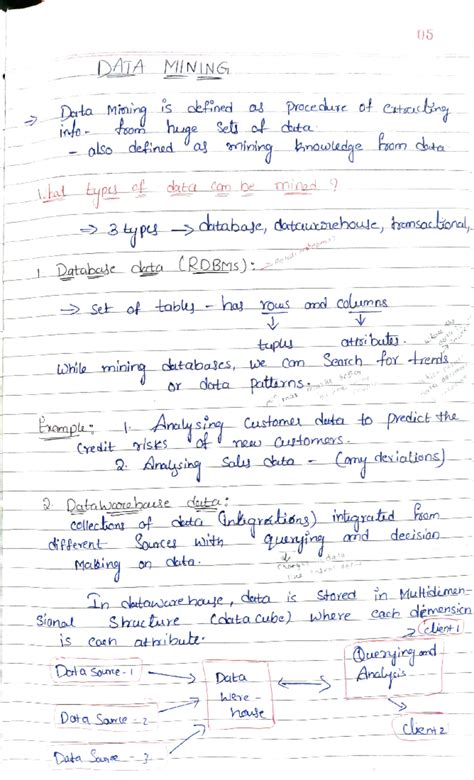 115
DATA MINING
→ Data Mining is defined as procedure of extracting
info - from huge sets of data
- also defined as mining knowledge from data
types of data can be mined ?
→ 3 types → database, datawarehouse, transactional,
1. Database data (RDBMS): →
→ set of tables - has rows and columns
↓ ↓
tuples attributes.
While mining databases, we can Search for trends
or data patterns.
Example: 1. Analysing Customer data to predict the
Credit risks of new customers.
2. Analysing Sales data - (any deviations)
2. Datawarehouse data:
collections of data (Integrations) integrated from
different Sources with querying and decision
Making on data.
In datawarehouse, data is stored in Multidimen-
sional Structure (data cube) where each demension
is each attribute.
client 1
Data Source - 1
Data
ware -
house
Querying and
Analysis
Data Source - 2
client 2
Data Source - 3